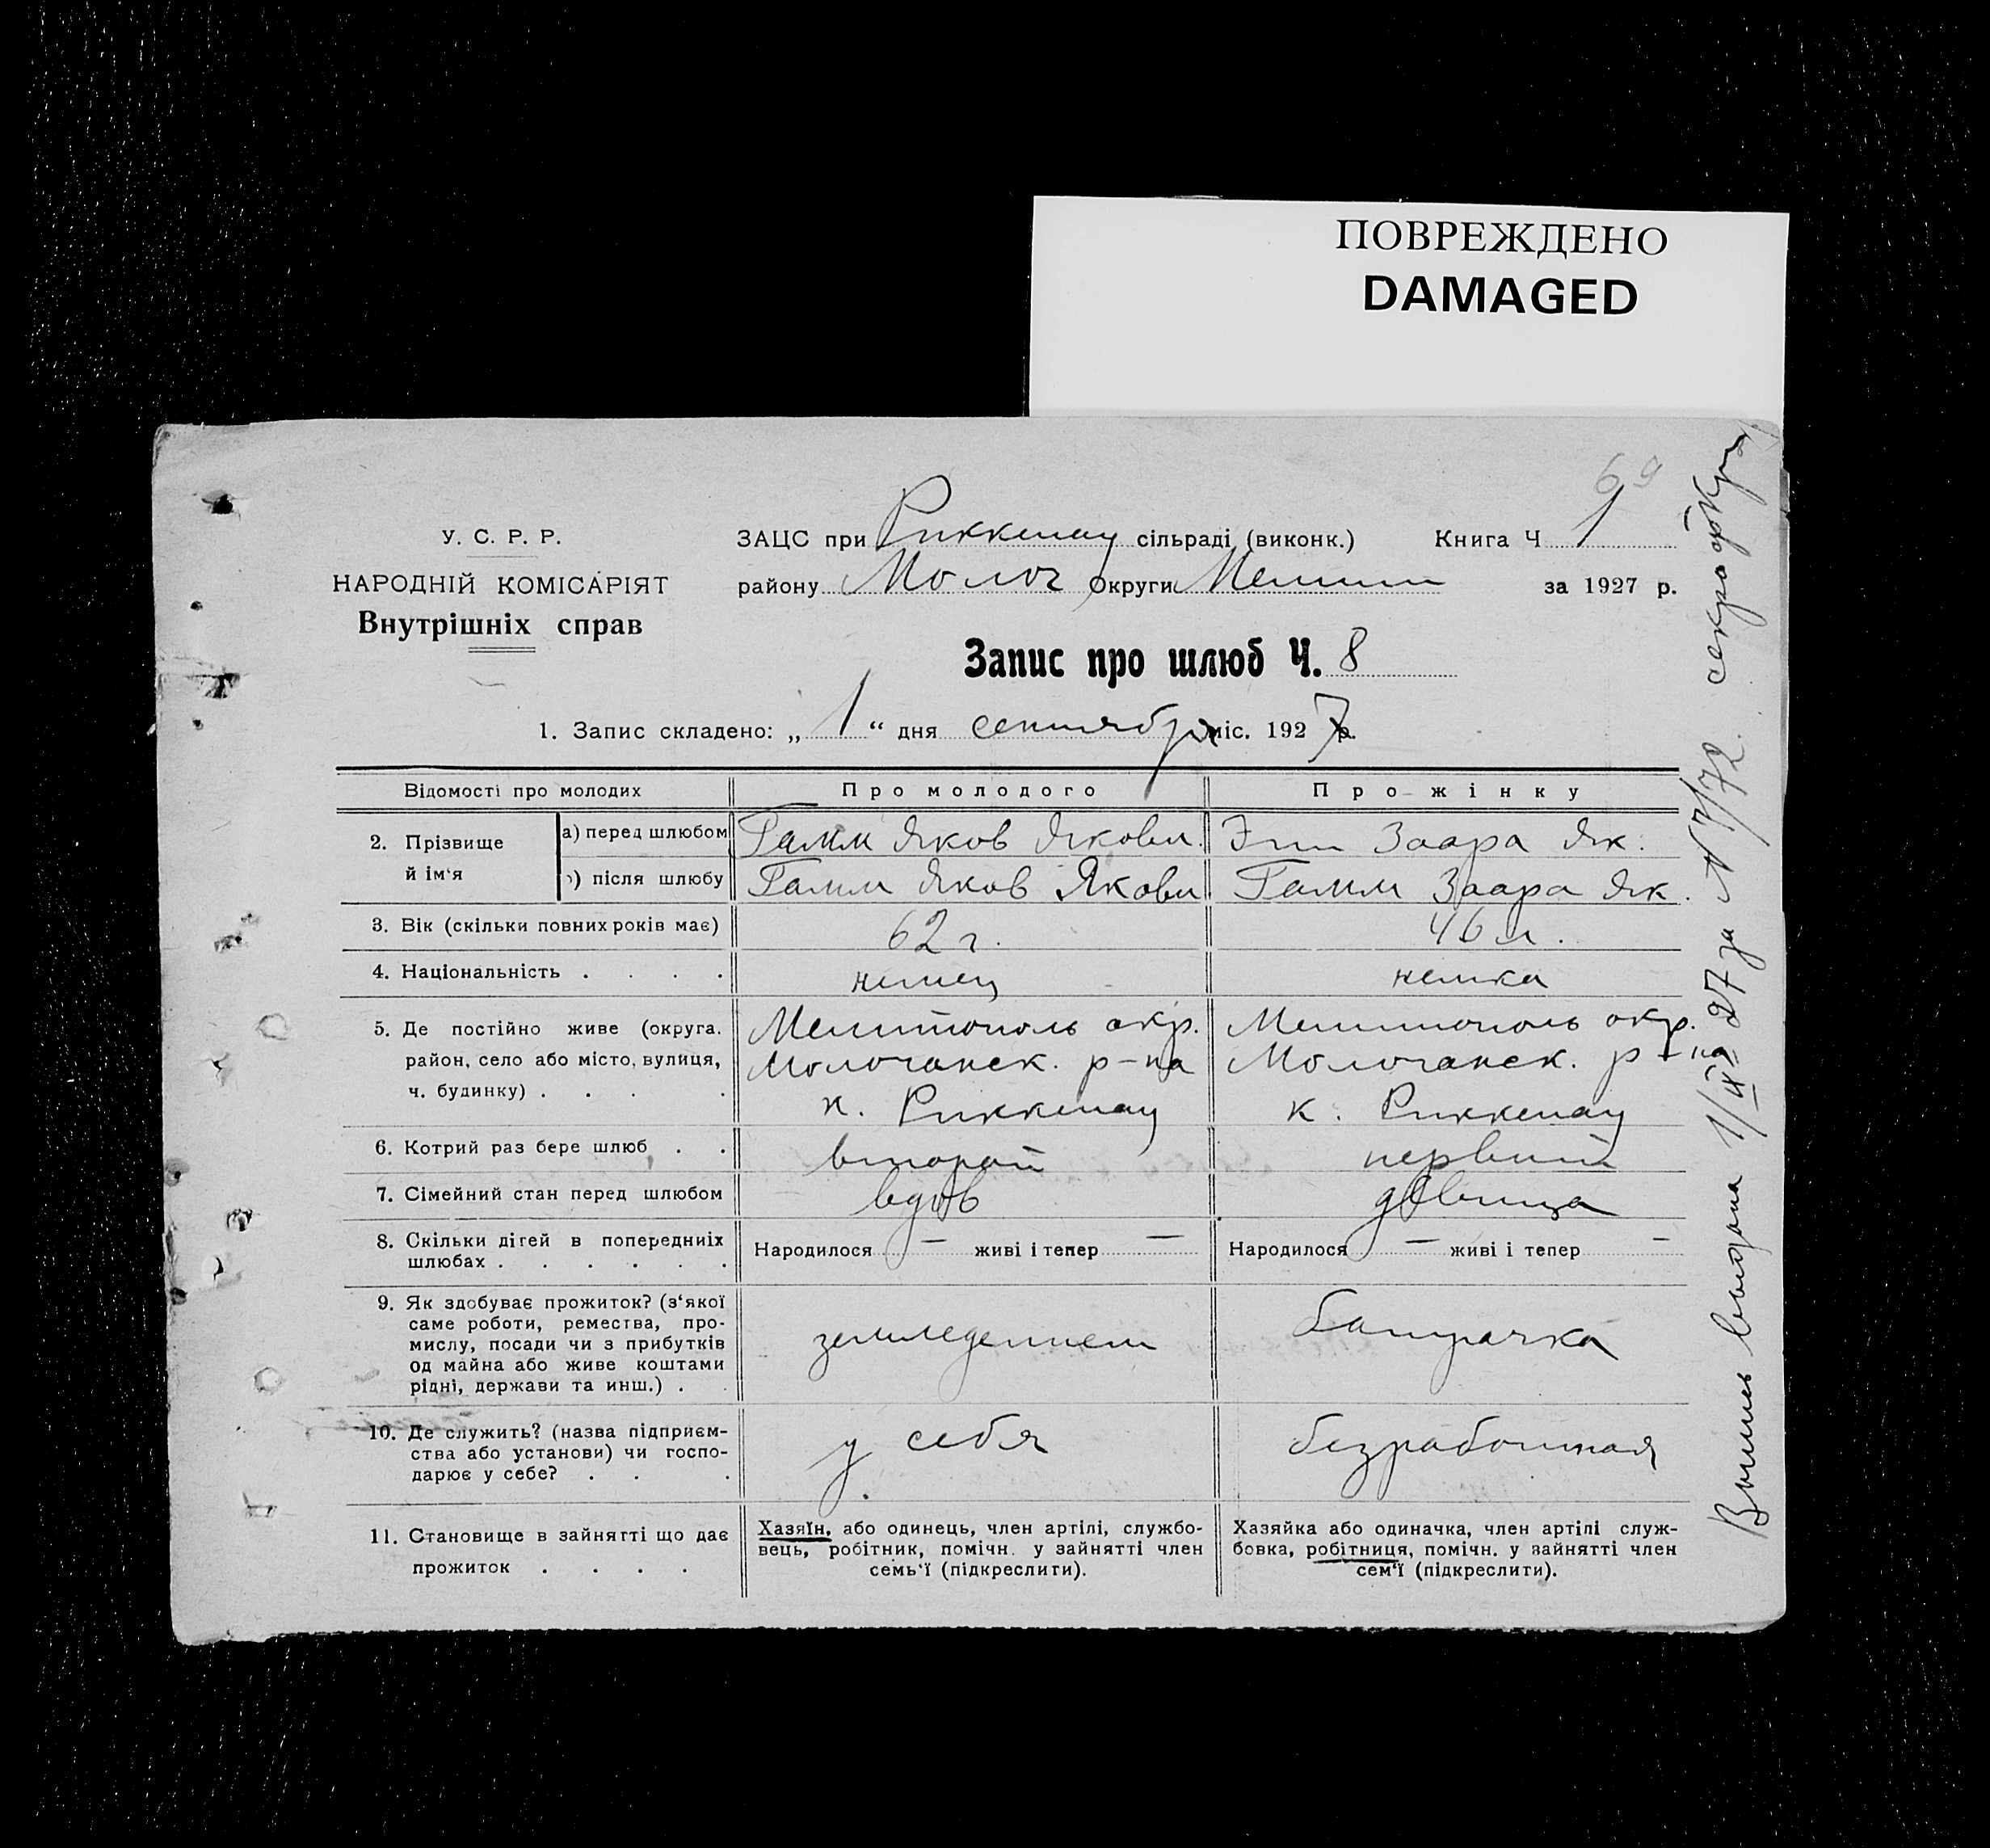 ПОВРЕЖДЕНО
DAMAGED
69
У. С. Р. Р.
НАРОДНІЙ КОМІСАРІЯТ
Внутрішніх справ
ЗАЦС при Риккенау сільраді (виконк.) Книга Ч 1
району Молоч Округи Мелит за 1927 р.
Запис про шлюб Ч. 8
1. Запис складено: „ 1 “ дня сентября міс. 1927 р.
Відомості про молодих
Про молодого
Про жінку
2. Прізвище й ім‘я
а) перед шлюбом
Гамм Яков Якови.
Эпп Заара Як.
б) після шлюбу
Гамм Яков Якови
Гамм Заара Як.
3. Вік (скільки повних років має)
62 г.
46 л.
4. Національність . . . .
немец
немка
5. Де постійно живе (округа.
район, село або місто, вулиця,
ч. будинку) . . . .
Мелитополь окр.
Молочанск. р-на
к. Риккенау
Мелитополь окр.
Молочанск. р-на
к. Риккенау
6. Котрий раз бере шлюб . .
второй
первий
7. Сімейний стан перед шлюбом
вдов
девица
8. Скільки дітей в попередніх
шлюбах . . . . . .
Народилося — живі і тепер —
Народилося — живі і тепер —
9. Як здобуває прожиток? (з‘якої
саме роботи, ремества, про-
мислу, посади чи з прибутків
од майна або живе коштами
рідні, держави та инш.) . .
земледелием
батрачка
10. Де служить? (назва підприєм-
ства або установи) чи госпо-
дарює у себе? . . .
у себя
безработная
11. Становище в зайнятті що дає
прожиток . . . .
Хазяїн, або одинець, член артілі, службо-
вець, робітник, помічн. у зайнятті член
семь‘ї (підкреслити).
Хазяйка або одиначка, член артілі служ-
бовка, робітниця, помічн. у зайнятті член
сем‘ї (підкреслити).
Выпись выдана 1/IX 27 за N 7/72.